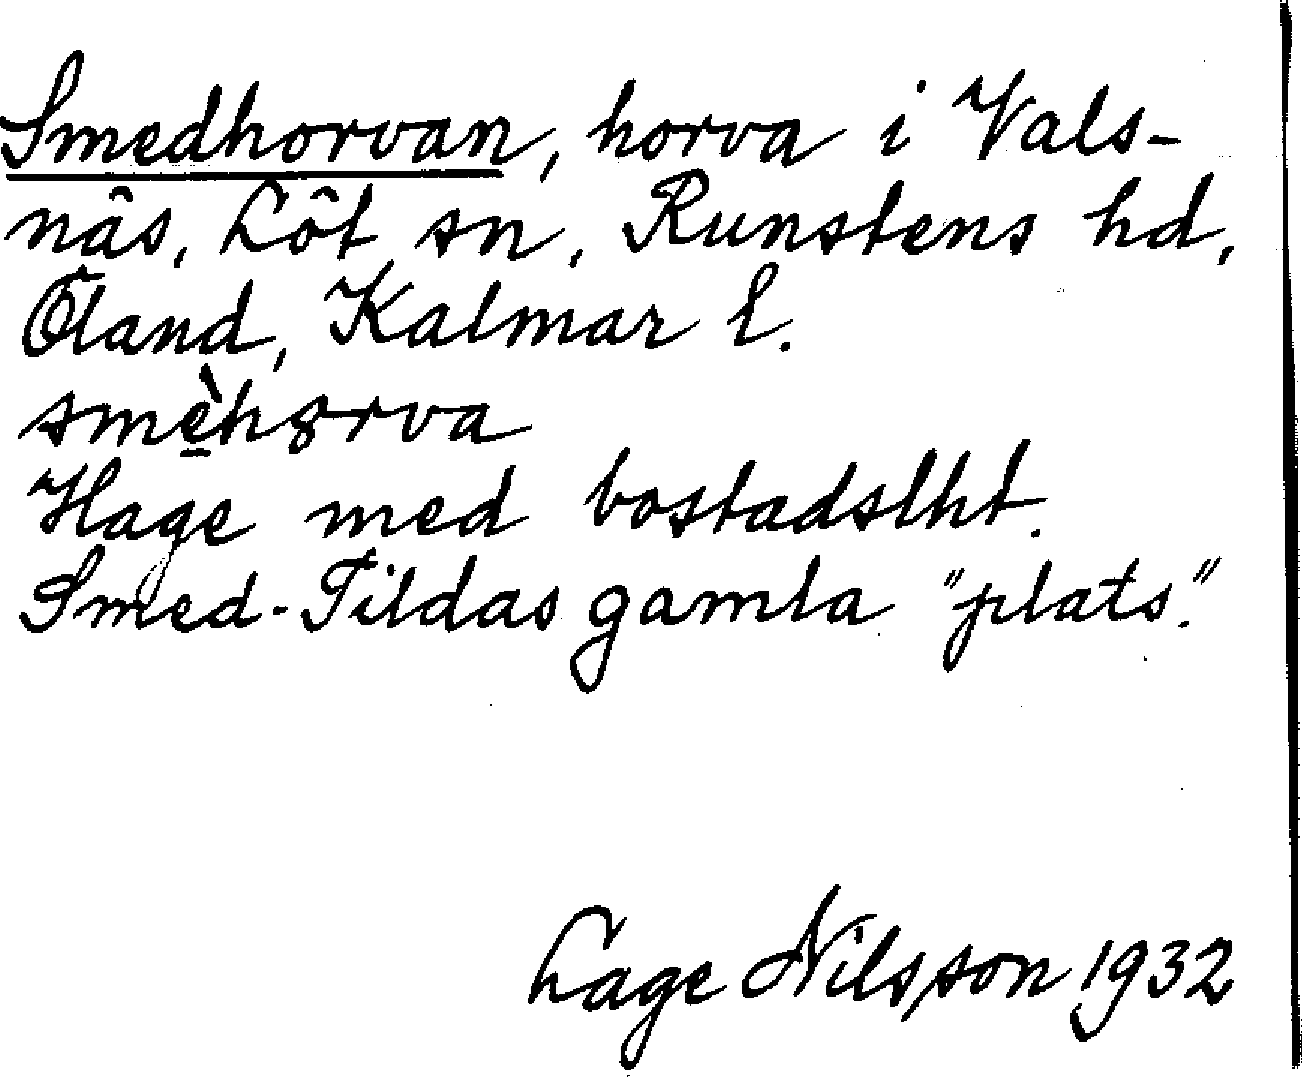 Smedhorvan, horva i Vals-
näs, Löt sn, Runstens hd,
Öland, Kalmar l.
smè̱hȣrva
Hage med bostadslht.
Smed-Tildas gamla "plats."
Lage Nilsson 1932